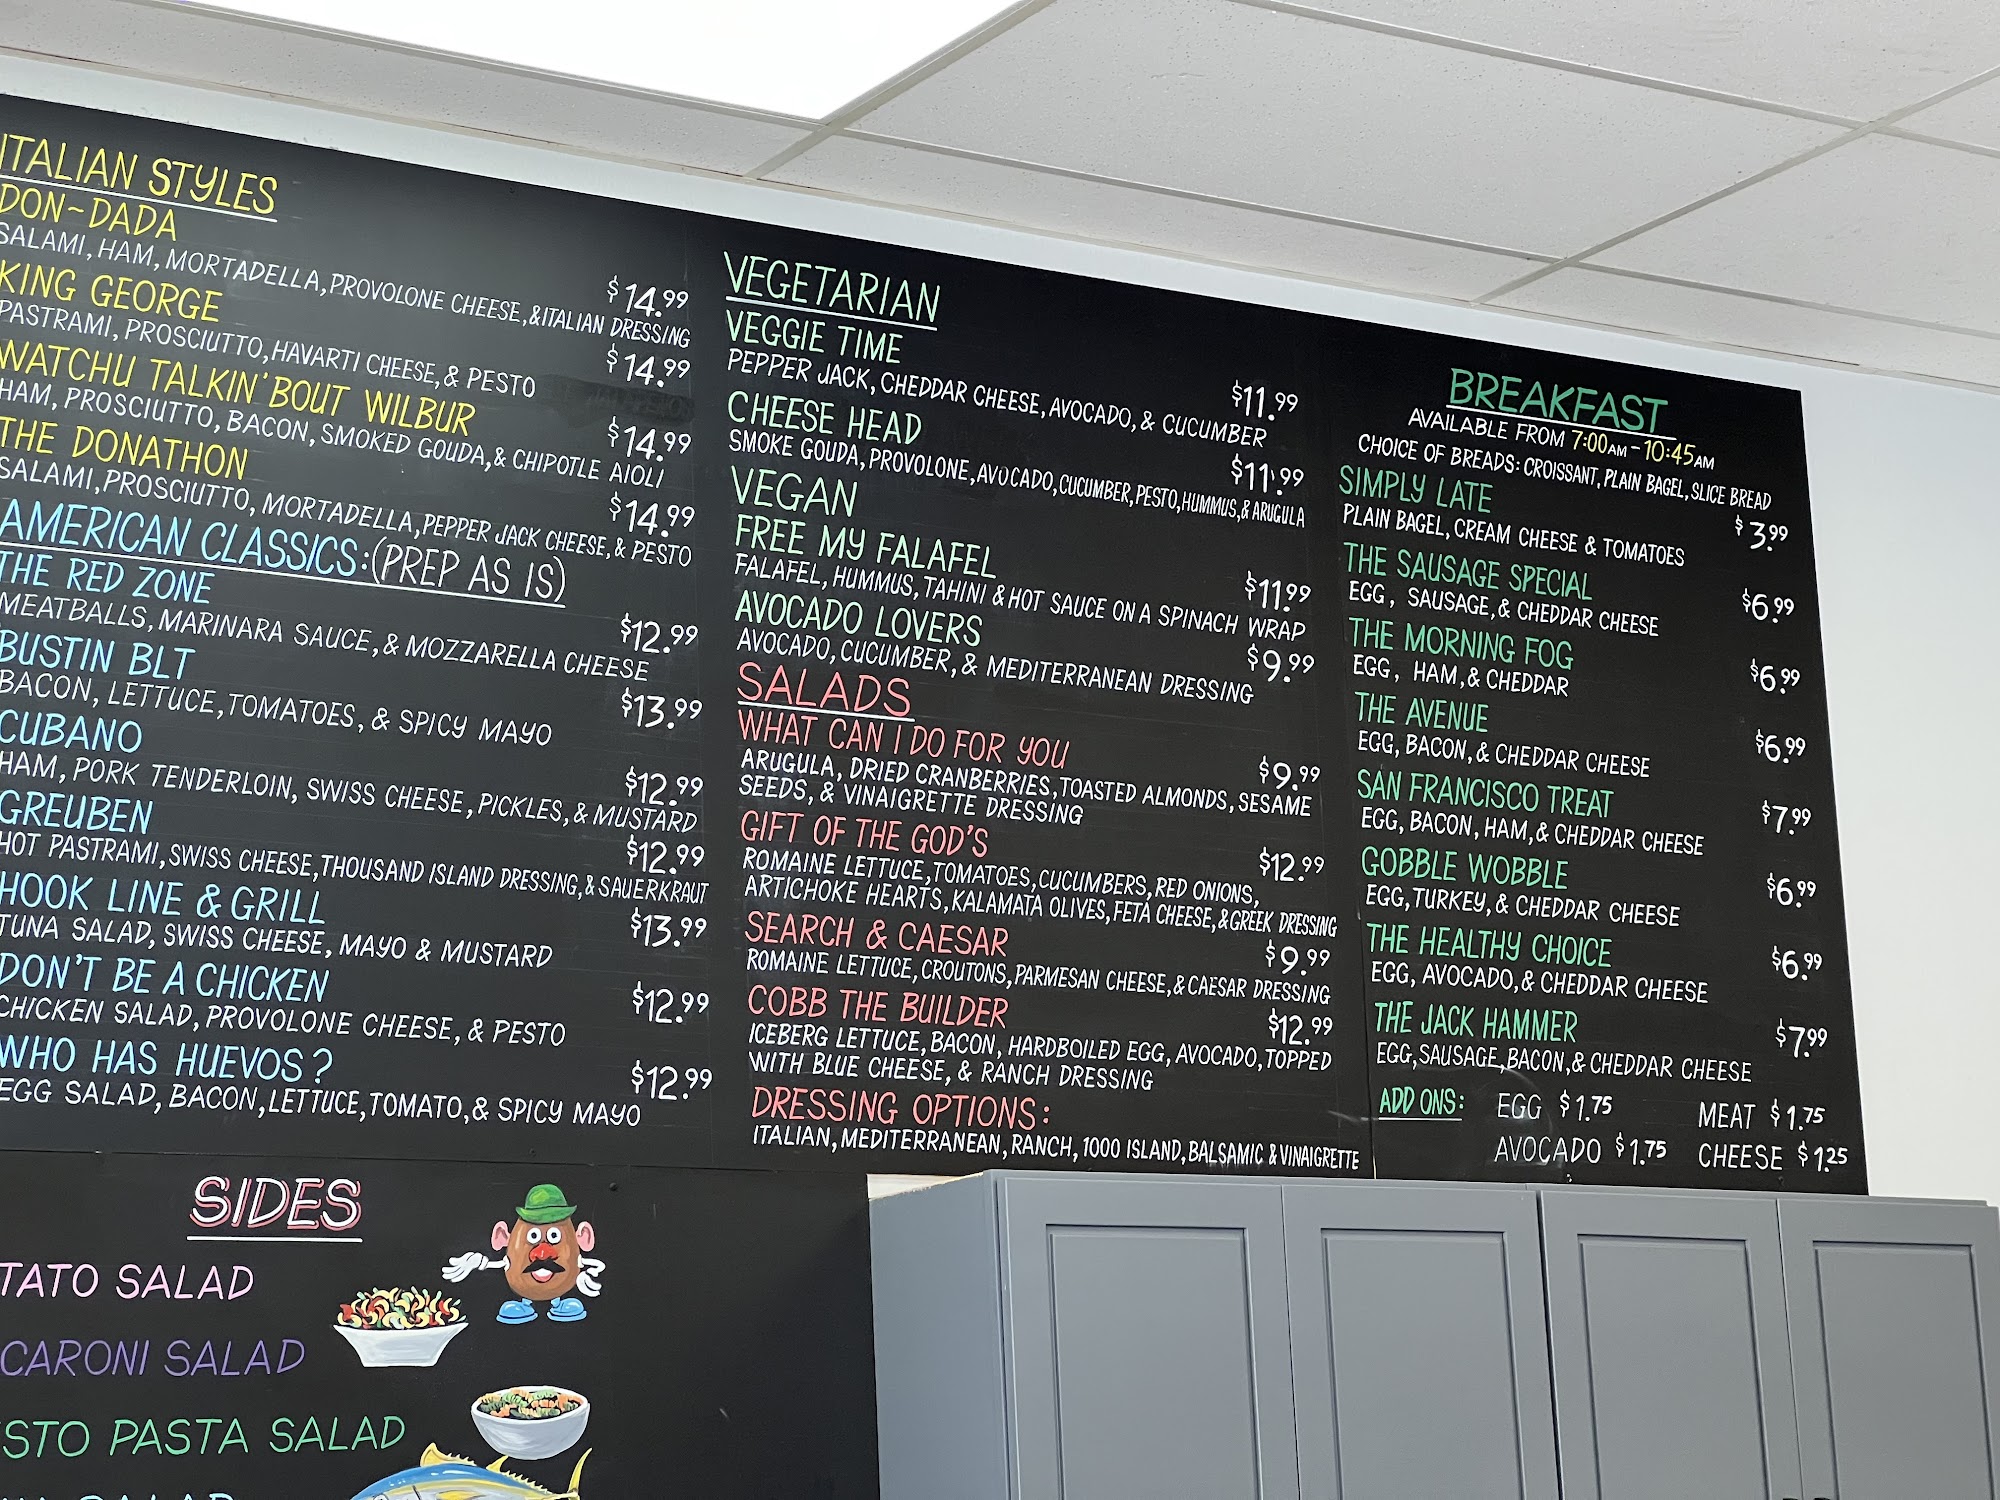 ITALIAN STYLES
DON~DADA
$14.99
SALAMI, HAM, MORTADELLA, PROVOLONE CHEESE, & ITALIAN DRESSING
KING GEORGE
$14.99
PASTRAMI, PROSCIUTTO, HAVARTI CHEESE, & PESTO
WATCHU TALKIN' BOUT WILBUR
$14.99
HAM, PROSCIUTTO, BACON, SMOKED GOUDA, & CHIPOTLE AIOLI
THE DONATHON
$14.99
SALAMI, PROSCIUTTO, MORTADELLA, PEPPER JACK CHEESE, & PESTO
AMERICAN CLASSICS: (PREP AS IS)
THE RED ZONE
$12.99
MEATBALLS, MARINARA SAUCE, & MOZZARELLA CHEESE
BUSTIN BLT
$13.99
BACON, LETTUCE, TOMATOES, & SPICY MAYO
CUBANO
$12.99
HAM, PORK TENDERLOIN, SWISS CHEESE, PICKLES, & MUSTARD
GREUBEN
$12.99
HOT PASTRAMI, SWISS CHEESE, THOUSAND ISLAND DRESSING, & SAUERKRAUT
HOOK LINE & GRILL
$13.99
TUNA SALAD, SWISS CHEESE, MAYO & MUSTARD
DON'T BE A CHICKEN
$12.99
CHICKEN SALAD, PROVOLONE CHEESE, & PESTO
WHO HAS HUEVOS?
$12.99
EGG SALAD, BACON, LETTUCE, TOMATO, & SPICY MAYO
VEGETARIAN
VEGGIE TIME
$11.99
PEPPER JACK, CHEDDAR CHEESE, AVOCADO, & CUCUMBER
CHEESE HEAD
$11.99
SMOKE GOUDA, PROVOLONE, AVOCADO, CUCUMBER, PESTO, HUMMUS, & ARUGULA
VEGAN
FREE MY FALAFEL
$11.99
FALAFEL, HUMMUS, TAHINI & HOT SAUCE ON A SPINACH WRAP
AVOCADO LOVERS
$9.99
AVOCADO, CUCUMBER, & MEDITERRANEAN DRESSING
SALADS
WHAT CAN I DO FOR YOU
$9.99
ARUGULA, DRIED CRANBERRIES, TOASTED ALMONDS, SESAME
SEEDS, & VINAIGRETTE DRESSING
GIFT OF THE GOD'S
$12.99
ROMAINE LETTUCE, TOMATOES, CUCUMBERS, RED ONIONS,
ARTICHOKE HEARTS, KALAMATA OLIVES, FETA CHEESE, & GREEK DRESSING
SEARCH & CAESAR
$9.99
ROMAINE LETTUCE, CROUTONS, PARMESAN CHEESE, & CAESAR DRESSING
COBB THE BUILDER
$12.99
ICEBERG LETTUCE, BACON, HARDBOILED EGG, AVOCADO, TOPPED
WITH BLUE CHEESE, & RANCH DRESSING
DRESSING OPTIONS:
ITALIAN, MEDITERRANEAN, RANCH, 1000 ISLAND, BALSAMIC & VINAIGRETTE
BREAKFAST
AVAILABLE FROM 7:00AM - 10:45AM
CHOICE OF BREADS: CROISSANT, PLAIN BAGEL, SLICE BREAD
SIMPLY LATE
$3.99
PLAIN BAGEL, CREAM CHEESE & TOMATOES
THE SAUSAGE SPECIAL
$6.99
EGG, SAUSAGE, & CHEDDAR CHEESE
THE MORNING FOG
$6.99
EGG, HAM, & CHEDDAR
THE AVENUE
$6.99
EGG, BACON, & CHEDDAR CHEESE
SAN FRANCISCO TREAT
$7.99
EGG, BACON, HAM, & CHEDDAR CHEESE
GOBBLE WOBBLE
$6.99
EGG, TURKEY, & CHEDDAR CHEESE
THE HEALTHY CHOICE
$6.99
EGG, AVOCADO, & CHEDDAR CHEESE
THE JACK HAMMER
$7.99
EGG, SAUSAGE, BACON, & CHEDDAR CHEESE
ADD ONS: EGG $1.75 MEAT $1.75
AVOCADO $1.75 CHEESE $1.25
SIDES
TATO SALAD
CARONI SALAD
STO PASTA SALAD